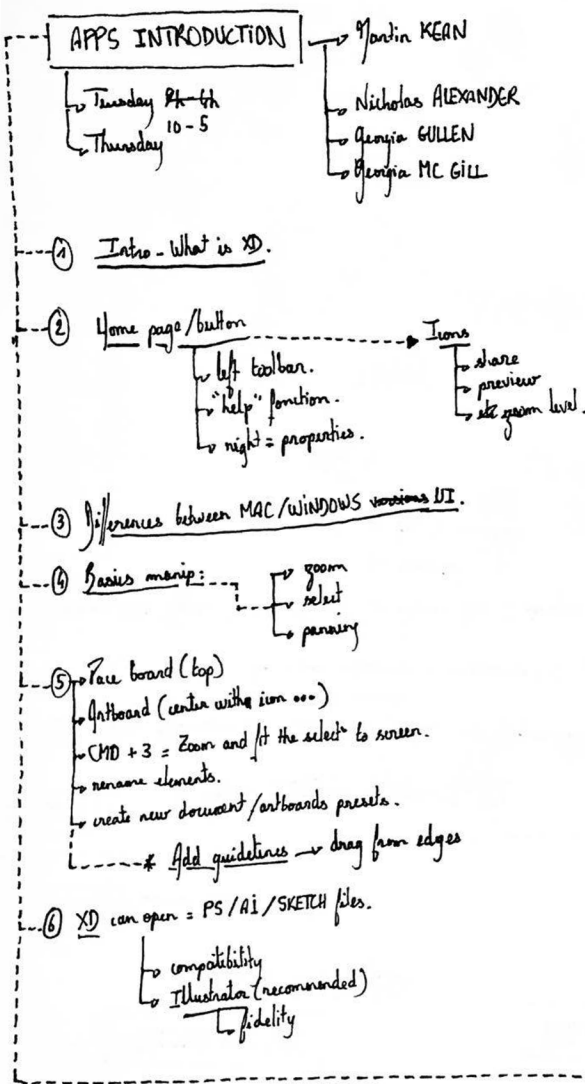 APPS INTRODUCTION
Martin KEAN
Nicholas ALEXANDER
Georgia GULLEN
Georgia MC GILL
Tuesday
10-5
Thursday
1 Intro - What is XD.
2 Home page/button
left toolbar.
"help" fonction.
right = properties.
Icons
share
preview
etc zoom level.
3 Differences between MAC/WINDOWS versions UI.
4 Basics manip:
zoom
select
panning
5 board (top)
Artboard (center with a icon ...)
CMD + 3 = Zoom and fit the select° to screen.
rename elements.
create new document/artboards presets.
* Add guidelines → drag from edges
6 XD can open = PS/Ai/SKETCH files.
compatibility
Illustrator (recommended)
fidelity